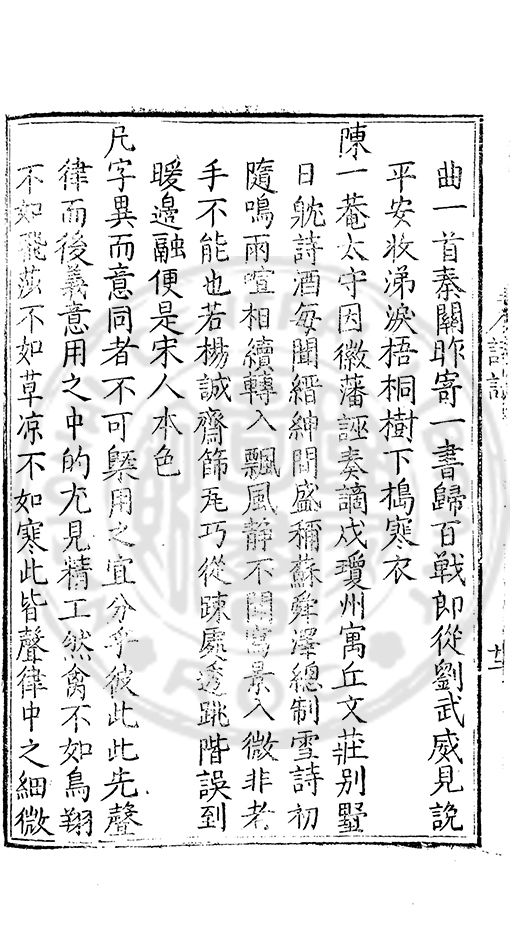 曲一首秦關昨寄一書歸百戰即從劉武威見說
平安收涕淚梧桐樹下搗寒衣
陳一菴太守因徽藩誣奏謫戍瓊州寓丘文莊別墅
日躭詩酒每聞縉紳間盛稱蘇舜澤總制雪詩初
隨鳴雨喧相續轉入飄風静不聞寫景入微非老
手不能也若楊誠齋篩瓦巧從踈處透跳階誤到
暖邊融便是宋人本色
凡字異而意同者不可槩用之宜分乎彼此此先聲
律而後義意用之中的尤見精工然禽不如鳥翔
不如飛莎不如草凉不如寒此皆聲律中之細微